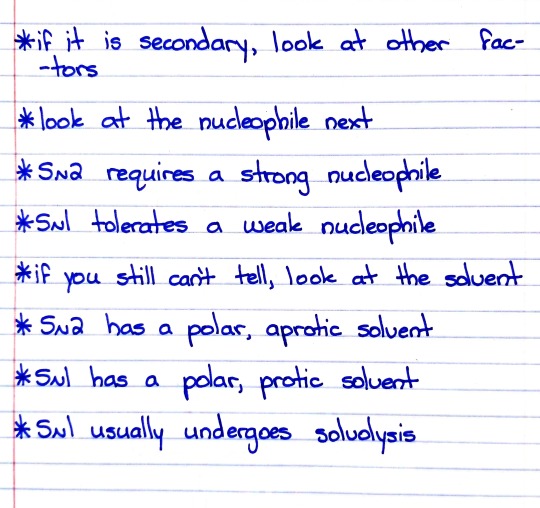 *if it is secondary, look at other fac-
-tors
*look at the nucleophile next
*SN2 requires a strong nucleophile
*SN1 tolerates a weak nucleophile
*if you still can't tell, look at the solvent
*SN2 has a polar, aprotic solvent
*SN1 has a polar, protic solvent
*SN1 usually undergoes solvolysis